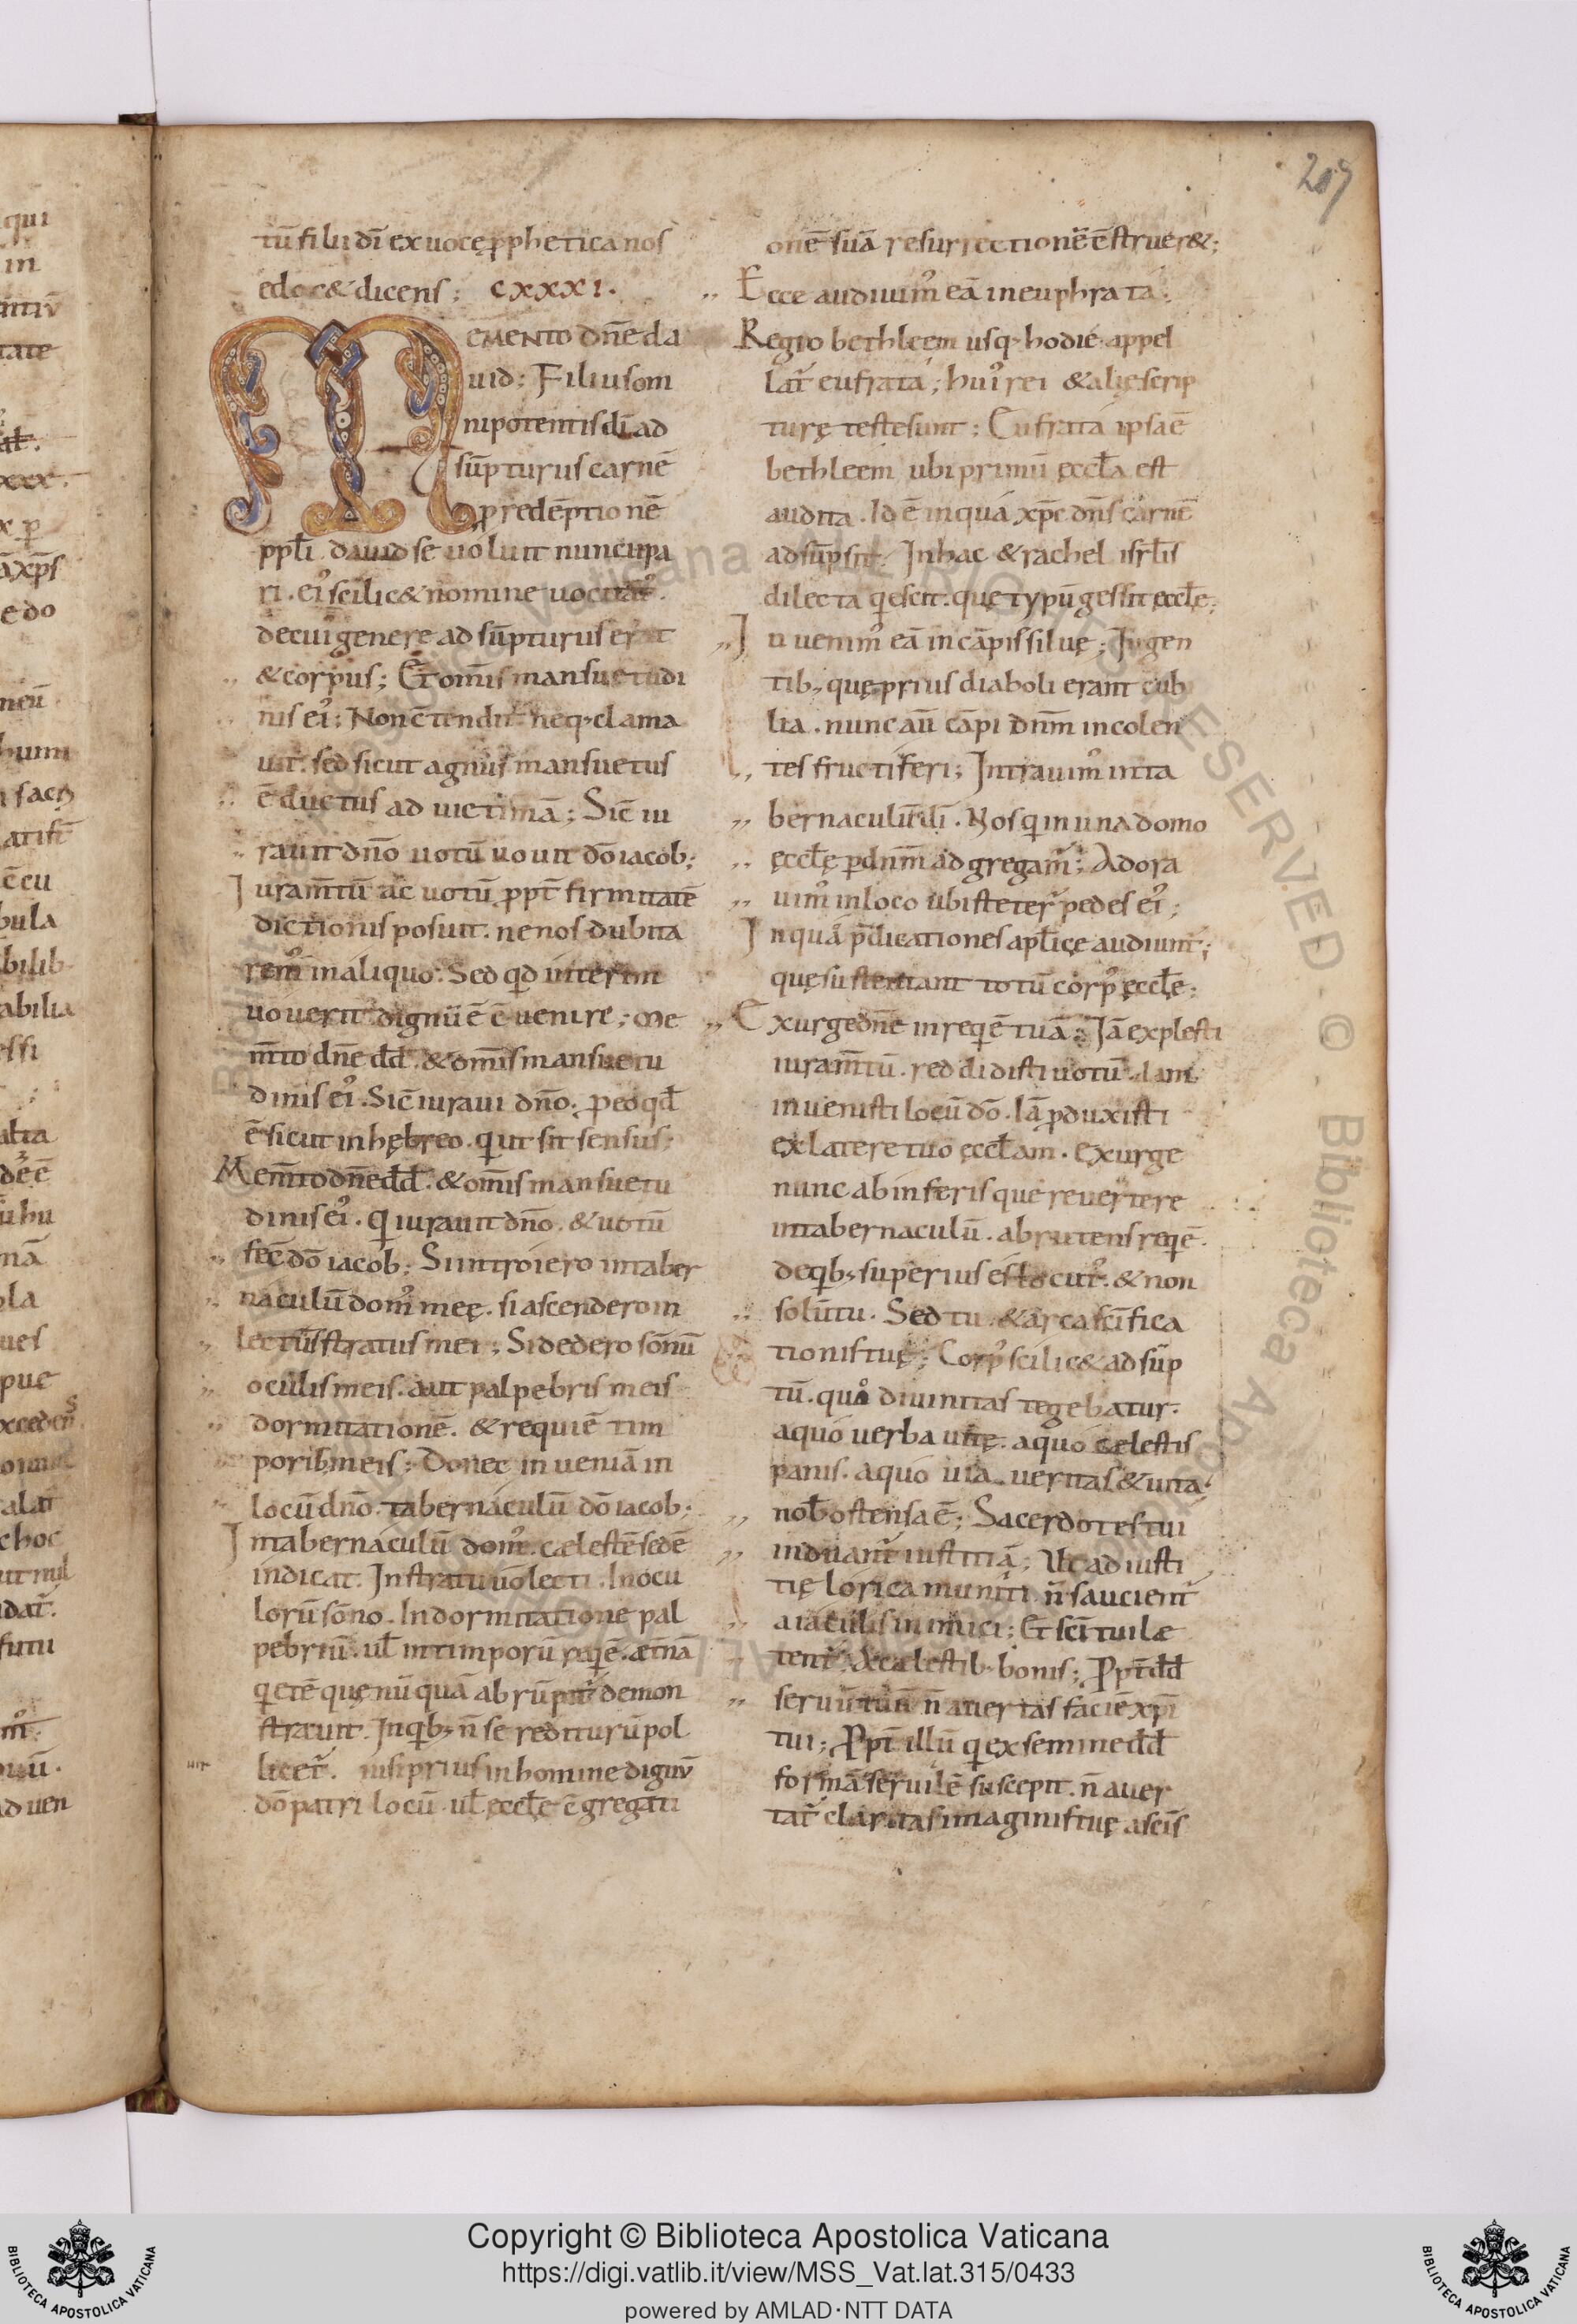 209
tū filii dī ex uoce ꝓphetica nos
edoc& dicens; CXXXI.
MEMENTO dn̄e da
uid; Filius om
nipotentis dī ad
sūpturus carnē
ꝓ redēptionē
pp̄li dauid se uoluit nuncupa
de cui genere ad sūpturus erat
& corpus; Et om̄is mansuetudi
nis ei᾿; Non ctendit neq; clama
uit. sed sicut agnus mansuetus
ē ductus ad uictimā; Sic̄ iu
rauit dn̄o uotū uouit dō iacob;
Iuram̄tū ac uotū ꝓpt̄ firmitatē
dictionis posuit. ne nos dubita
rem᾿ in aliquo. Sed qd̄
uouerit dignū ē c̄uenire; Me
m̄to dn̄e dd̄. & om̄is mansuetu
dinis ei᾿. Sic̄ iuraui dn̄o; ꝓ eo qd̄
ē sicut in hębreo. q ut sit sensus;
Mem̄to dn̄e dd̄. & om̄is mansuetu
dinis ei᾿. q iurauit dn̄o. & uotū
fec̄ dō iacob; Si introiero in taber
naculū dom᾿ meę. si ascendero in
lectū stratus mei; Si dedero sōnū
oculis meis. aut palpebris meis
dormitationē. & requiē tim
porib; meis; Donec inueniā in
locū dn̄o. tabernaculū dō iacob;
In tabernaculū dom᾿. cælestē sedē
indicat. In stratū lecti. In ocu
lorū sōno. In dormitatione pal
pebriū. ul̄ in timporū reqē. æt̄nā
qetē quę nū quā abrūpit᾿ demon
strauit. In qb; n̄ se rediturū pol
licet᾿. nisi prius in homine dignū
dō patri locū. ul̄ eccl̄ę c̄gregati
onē suā resurrectionē c̄struer&;
Ecce audiuim᾿ eā in euphrata;
Regio bethleem usq; hodie appel
lat᾿ eufrata; hui᾿ rei & alię scrip
turę testes sunt; Eufrata ipsa ē
bethleem ubi primū eccl̄a est
audita. Id ē in qua xp̄c dn̄s carnē
adsūpsit. In hac & rachel isrl̄is
dilecta qescit. quę typū gessit eccl̄ę;
Inuenim᾿ eā in cāpis siluę; In gen
tib; quę prius diaboli erant cubi
lia. nunc aū cāpi dn̄m incolen
tes fructiferi; Intrauim᾿ in ta
bernaculū dī. Nos q in una domo
eccl̄ę ꝑ dn̄m adgregam᾿; Adora
uim᾿ in loco ubi steter᾿ pedes ei᾿;
In quā p̄dicationes apl̄icę audiunt᾿;
quę sustentant totū corp᾿ eccl̄ę;
Exurge dn̄e in reqē tuā; Iā explesti
iuram̄tū. reddidisti uotū. Iam
inuenisti locū dō. Iā ꝓduxisti
ex latere tuo eccl̄am. Exurge
nunc ab inferis que reuertere
in tabernaculū. abrutens reqē.
de qb; superius es locut᾿. & non
solū tu. Sed tu & arca sc̄ifica
tionis tuę; Corp᾿ scilic& adsūp
tū. quo diuinitas tegebatur.
a quo uerba uitę. a quo cælestis
panis. a quo uia. ueritas & uita
nob̄ ostensa ē; Sacerdotes tui
induant᾿ iustitiā; Ut ad iusti
tię lorica muniti n̄ saucient᾿
a iaculis inimici; Et sc̄i tui læ
tent᾿; De cælestib; bonis; Ppt̄ dd̄
seruū tuū n̄ auertas faciē xp̄i
tui; Ppt̄ illū q ex semine dd̄
formā seruilē suscepit. n̄ auer
tat᾿ claritas imaginis tuę a sc̄is
Copyright © Biblioteca Apostolica Vaticana
https://digi.vatlib.it/view/MSS_Vat.lat.315/0433
powered by AMLAD·NTT DATA
BIBLIOTECA APOSTOLICA VATICANA
BIBLIOTECA APOSTOLICA VATICANA